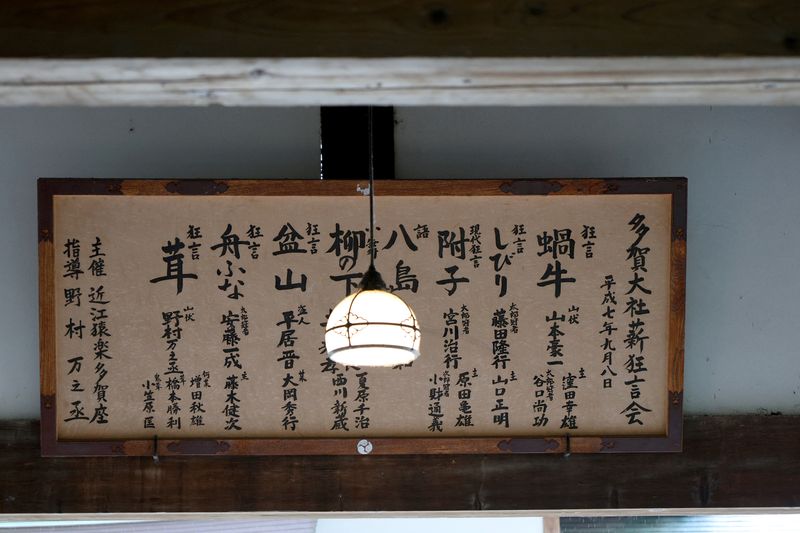 多賀大社薪狂言会
平成七年九月八日
狂言
蝸牛
山伏
山本豪一
主
窪田幸雄
太郎冠者
谷口尚功
狂言
しびり
太郎冠者
藤田隆行
主
山口正明
現代狂言
附子
太郎冠者
宮川治行
主
原田亀雄
小財通義
語
八島
柳の下
夏原千治
西川新蔵
狂言
盆山
盗人
平居晋
某
大岡秀行
狂言
舟ふな
太郎冠者
安藤一成
主
藤木健次
狂言
茸
山伏
野村万之丞
何某
増田秋雄
橋本勝利
小笠原匡
主催 近江猿楽多賀座
指導 野村万之丞